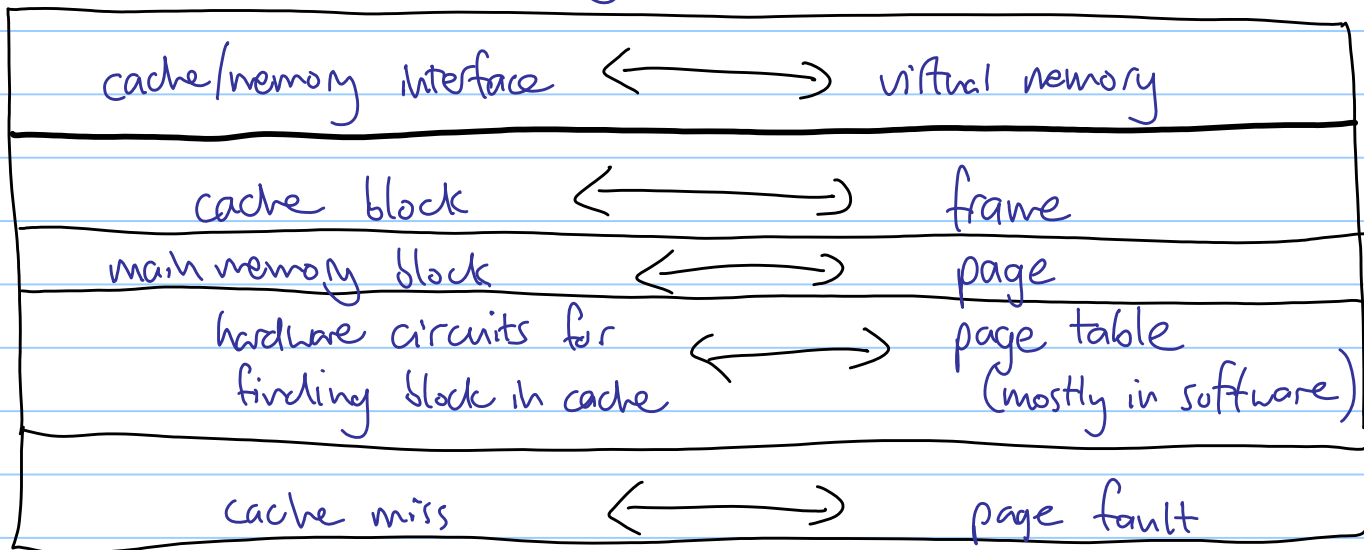 cache/memory interface ⟷ virtual memory
cache block ⟷ frame
main memory block ⟷ page
hardware circuits for ⟷ page table
finding block in cache (mostly in software)
cache miss ⟷ page fault